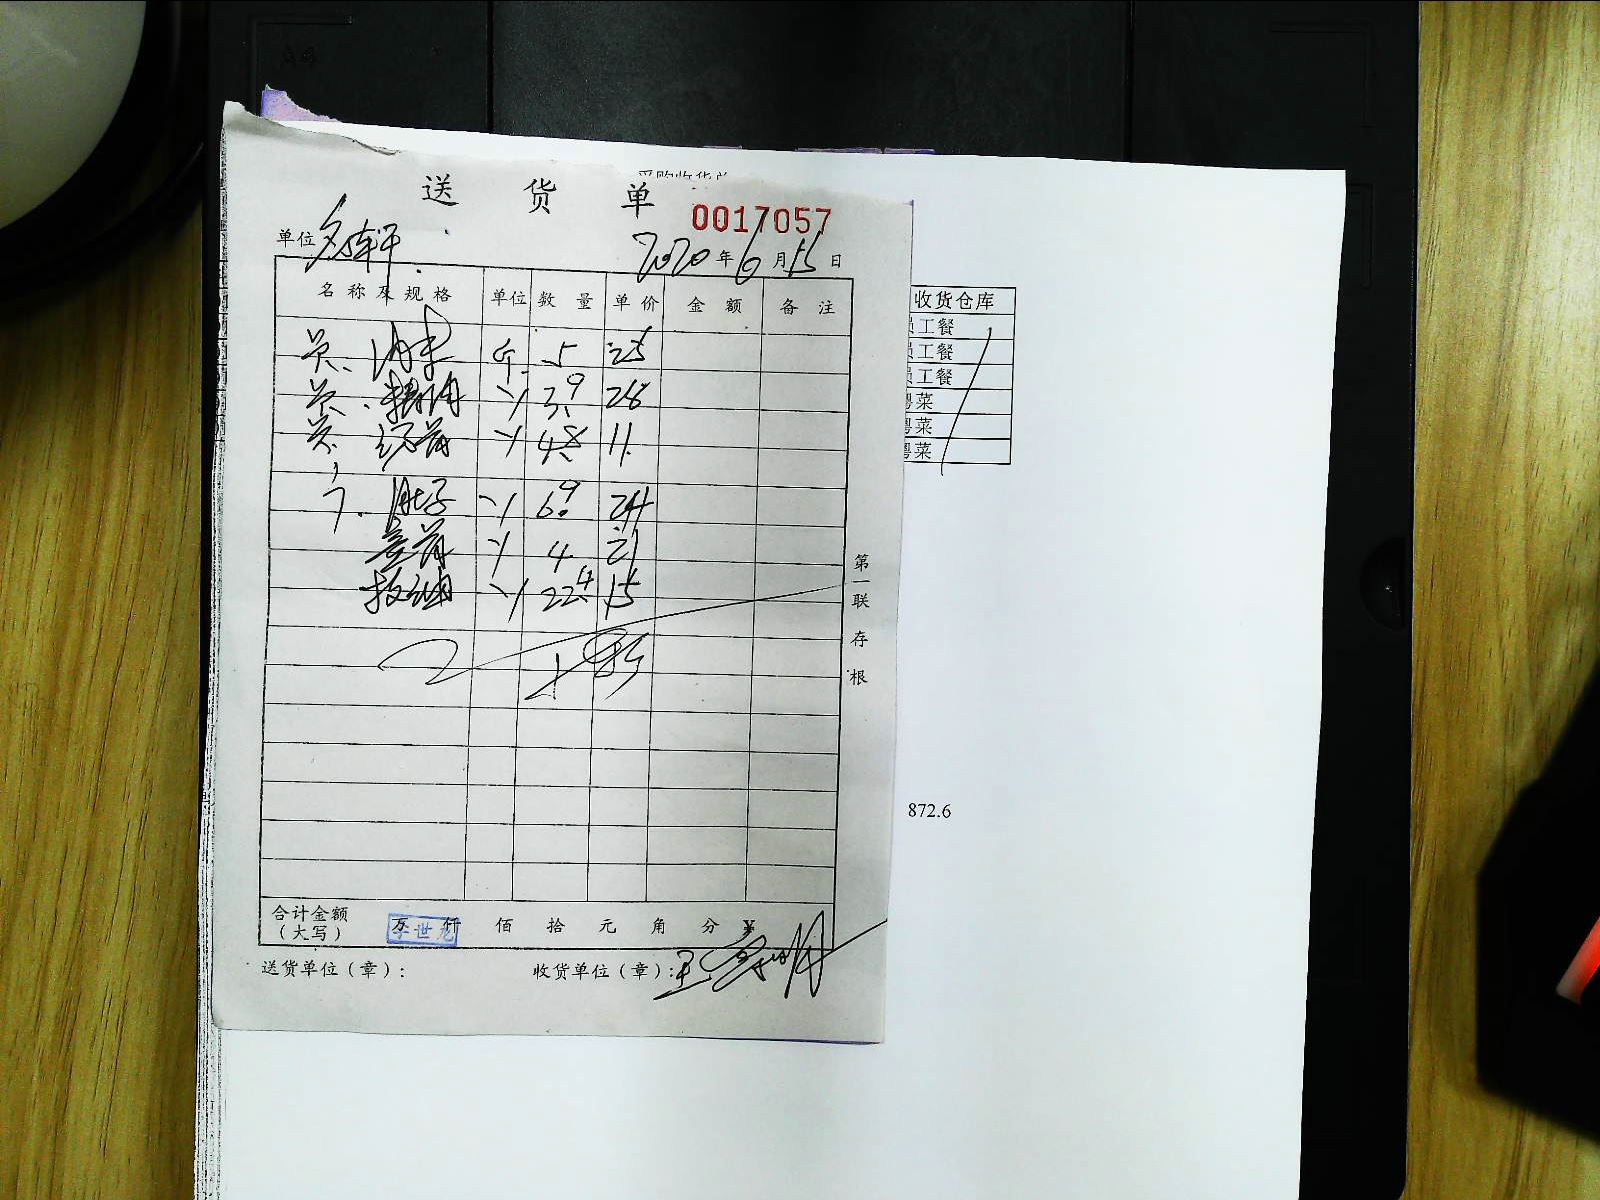 送 货 单
0017057
单位
2020年6月15日
名称及规格 单位 数量 单价 金额 备注
员. 肉末 斤 5 25
员. 精肉 3.9 28
员. 4.8 11
肚子 6.9 24
4 21
22.4 15
第一联 存根
合计金额(大写) 万 仟 佰 拾 元 角 分 ¥
李世龙
送货单位(章): 收货单位(章):
采购收货单
收货仓库
员工餐
员工餐
员工餐
粤菜
粤菜
粤菜
872.6